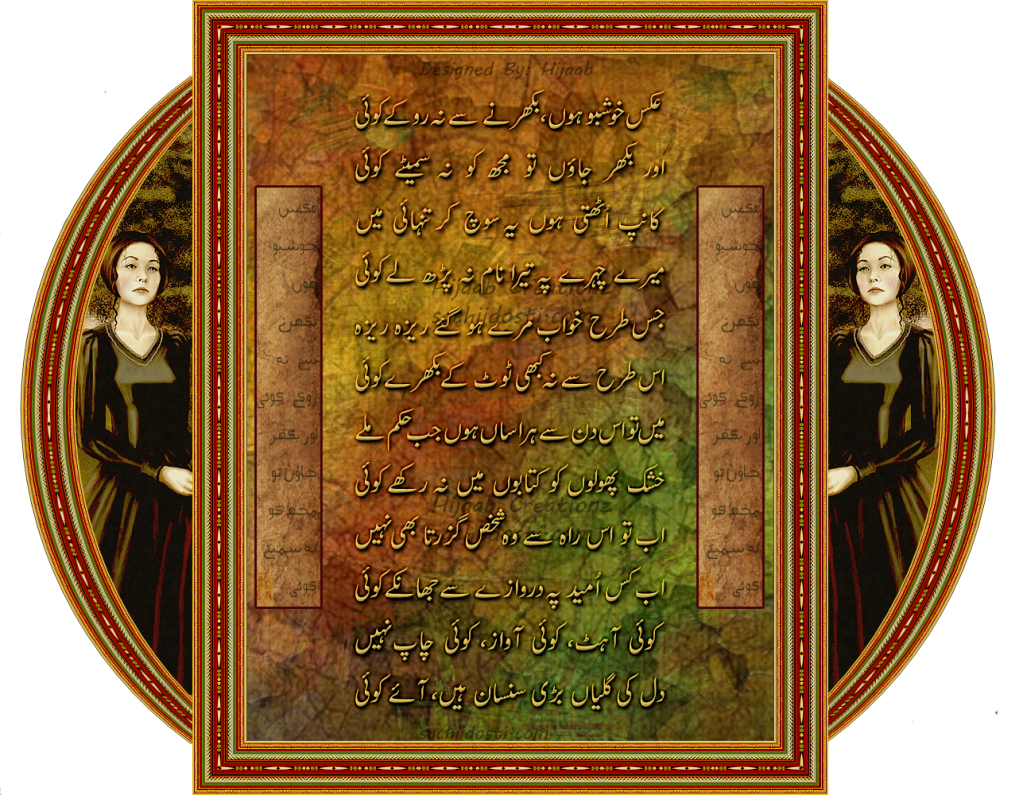 Designed By: Hijaab
عکس خوشبو ہوں، بکھرنے سے نہ روکے کوئی
اور بکھر جاؤں تو مجھ کو نہ سمیٹے کوئی
کانپ اُٹھتی ہوں یہ سوچ کر تنہائی میں
میرے چہرے پہ تیرا نام نہ پڑھ لے کوئی
جس طرح خواب مرے ہو گئے ریزہ ریزہ
اس طرح سے نہ کبھی ٹوٹ کے بکھرے کوئی
میں تو اس دن سے ہراساں ہوں جب حکم ملے
خشک پھولوں کو کتابوں میں نہ رکھے کوئی
Hijaab Creationz
اب تو اس راہ سے وہ شخص گزرتا بھی نہیں
اب کس اُمید پہ دروازے سے جھانکے کوئی
کوئی آہٹ، کوئی آواز، کوئی چاپ نہیں
دل کی گلیاں بڑی سنسان ہیں، آئے کوئی
suchiidosti.com
عکس
خوشبو
ہوں
بکھرن
سے نہ
روکے کوئی
اور بکھر
جاؤں تو
مجھ کو
نہ سمیٹے
کوئی
عکس
خوشبو
ہوں
بکھرن
سے نہ
روکے کوئی
اور بکھر
جاؤں تو
مجھ کو
نہ سمیٹے
کوئی